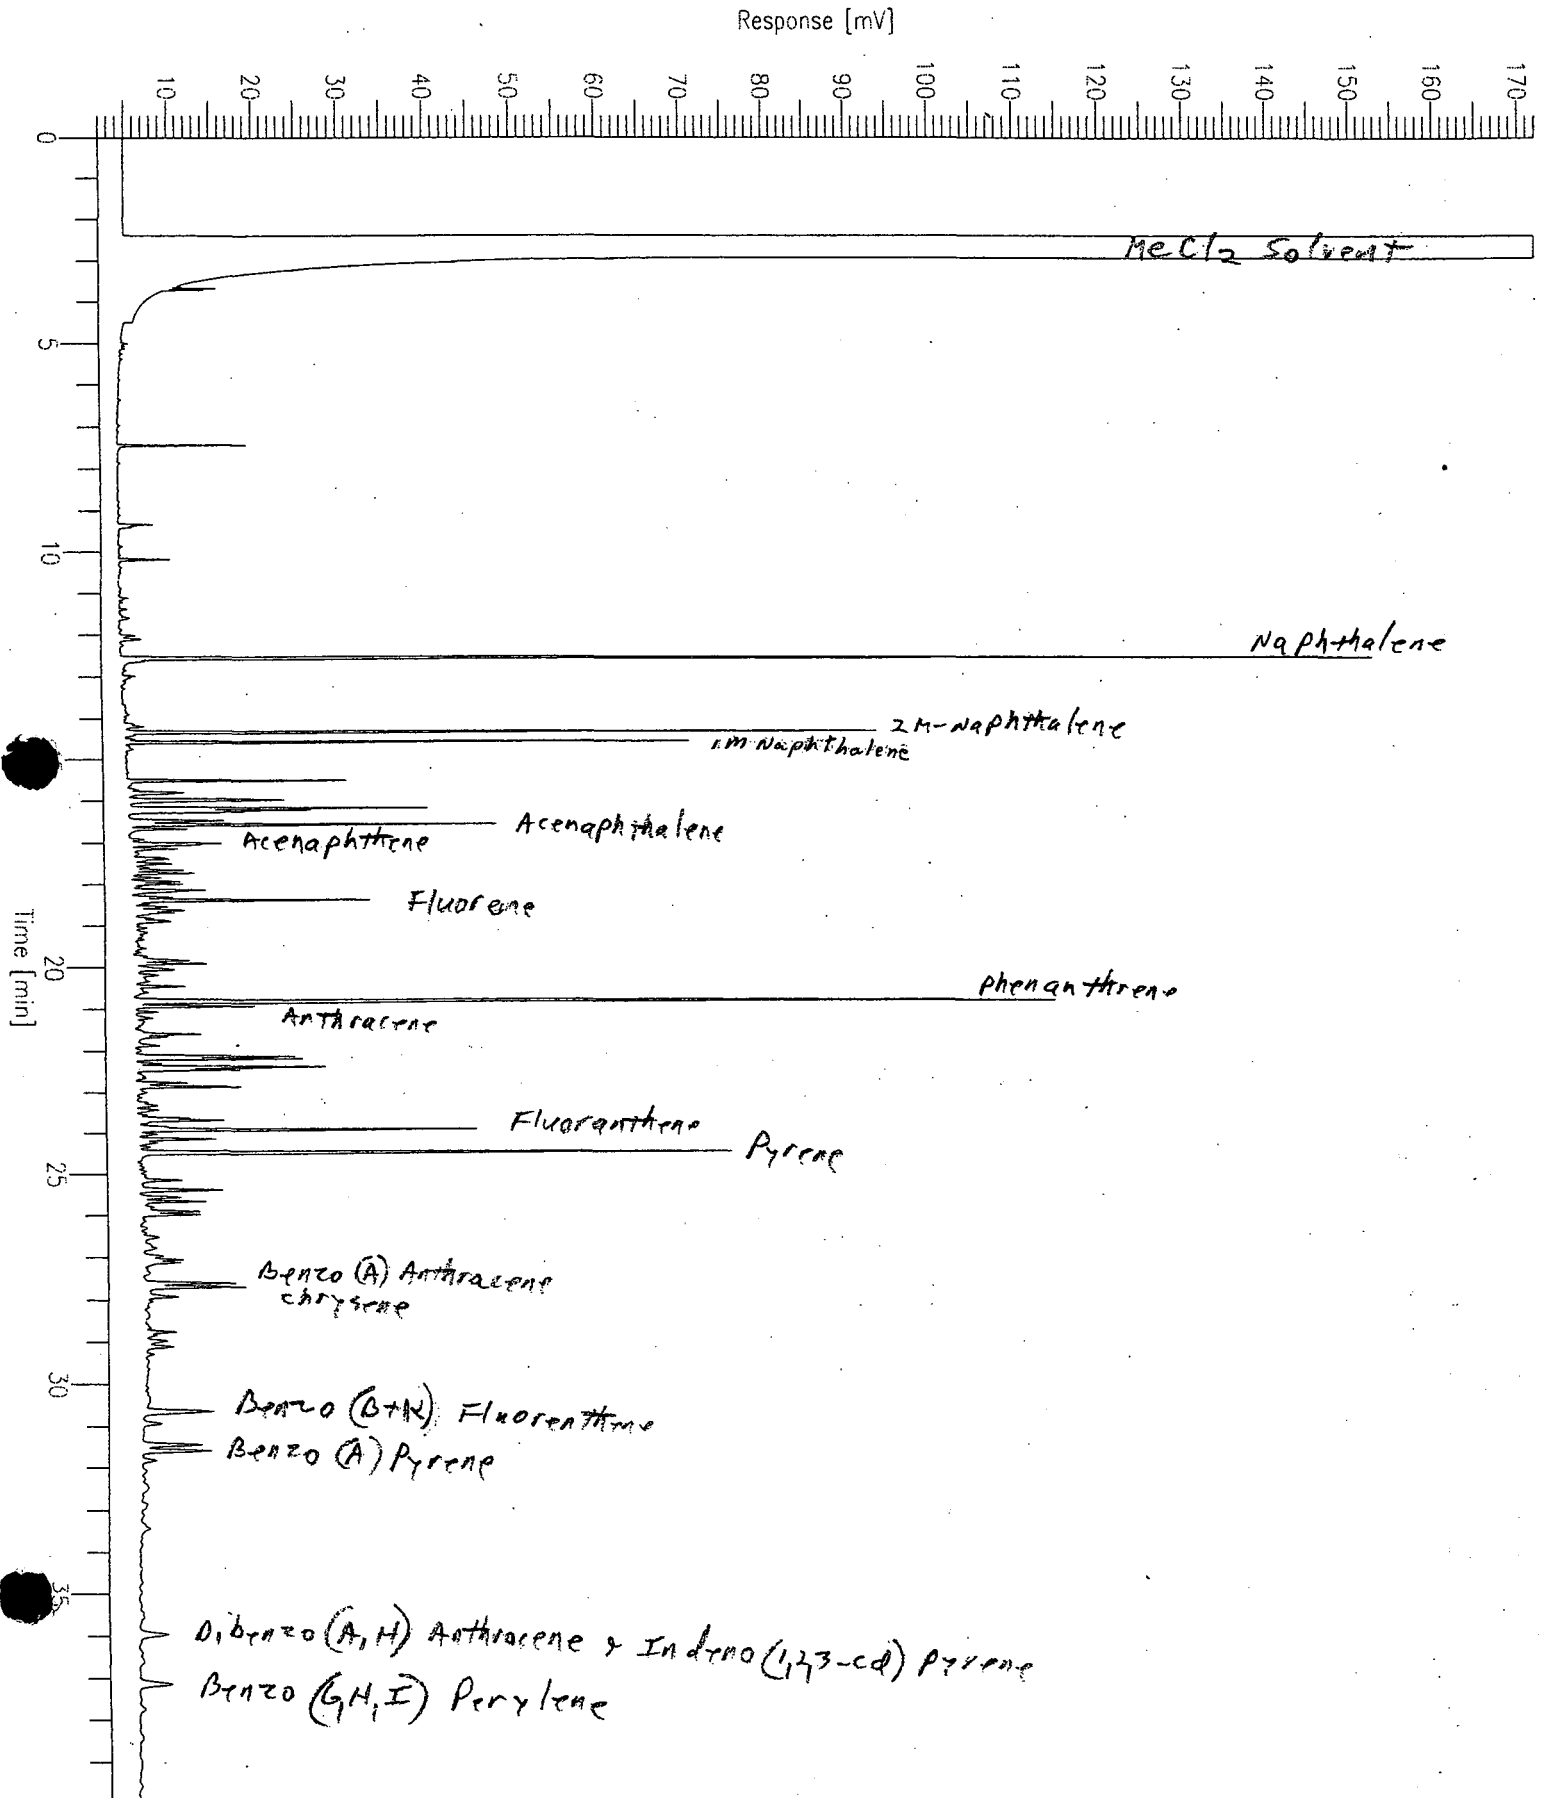 Response [mV]
10 20 30 40 50 60 70 80 90 100 110 120 130 140 150 160 170
0
MeCl2 Solvent
5
10
Naphthalene
2M-Naphthalene
1M Naphthalene
Acenaphthalene
Acenaphthene
Fluorene
Time [min]
20
Phenanthrene
Anthracene
Fluoranthene
Pyrene
25
Benzo (A) Anthracene
chrysene
30
Benzo (B+K) Fluorenthene
Benzo (A) Pyrene
35
Dibenzo (A,H) Anthracene & Indeno (1,2,3-cd) Pyrene
Benzo (G,H,I) Perylene